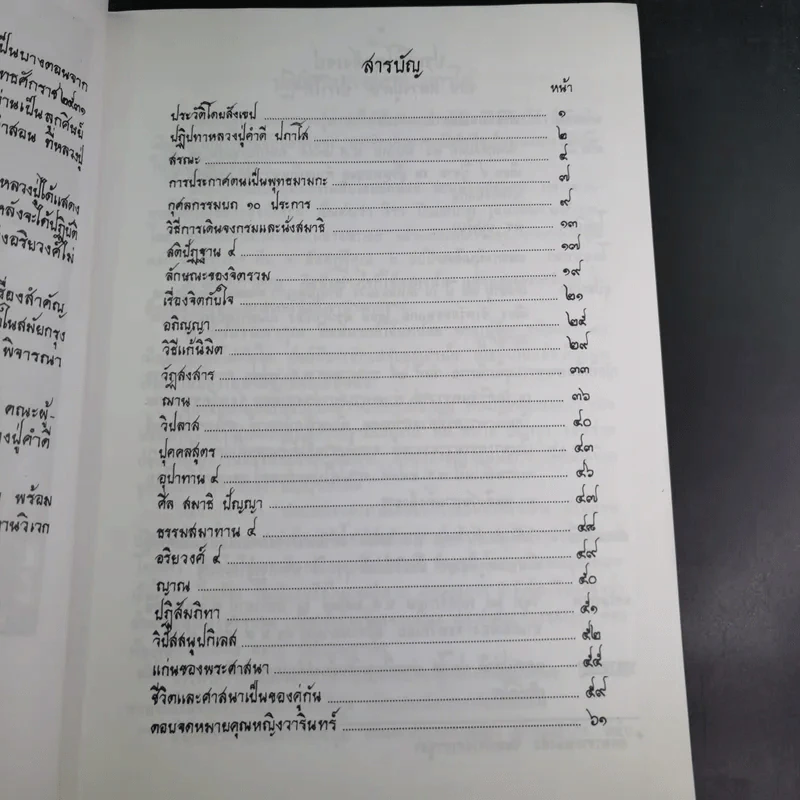 ป็นบางตอนจาก
ทธศักราช ๒๕๓๑
ท่านเป็นลูกศิษย์
ำสอน ที่หลวงปู่
หลวงปู่ได้แสดง
หลังจะได้ปฏิบัติ
งอริยวงศ์ไม่
รื่องสำคัญ
ในสมัยกรุง
พิจารณา
คณะผู้-
งปู่คำดี
พร้อม
านวิเวก
สารบัญ
หน้า
ประวัติโดยสังเขป ๑
ปฏิปทาหลวงปู่คำดี ปภาโส ๒
สรณะ ๕
การประกาศตนเป็นพุทธมามกะ ๗
กุศลกรรมบถ ๑๐ ประการ ๙
วิธีการเดินจงกรมและนั่งสมาธิ ๑๓
สติปัฏฐาน ๔ ๑๗
ลักษณะของจิตรวม ๑๙
เรื่องจิตกับใจ ๒๑
อภิญญา ๒๕
วิธีแก้นิมิต ๒๙
วัฏสงสาร ๓๓
ฌาน ๓๖
วิปลาส ๔๐
ปุคคลสูตร ๔๓
อุปาทาน ๔ ๔๖
ศีล สมาธิ ปัญญา ๔๗
ธรรมสมาทาน ๔ ๔๘
อริยวงศ์ ๔ ๔๙
ญาณ ๕๐
ปฏิสัมภิทา ๕๑
วิปัสสนูปกิเลส ๕๒
แก่นของพระศาสนา ๕๕
ชีวิตและศาสนาเป็นของคู่กัน ๕๙
ตอบจดหมายคุณหญิงวารินทร์ ๖๑